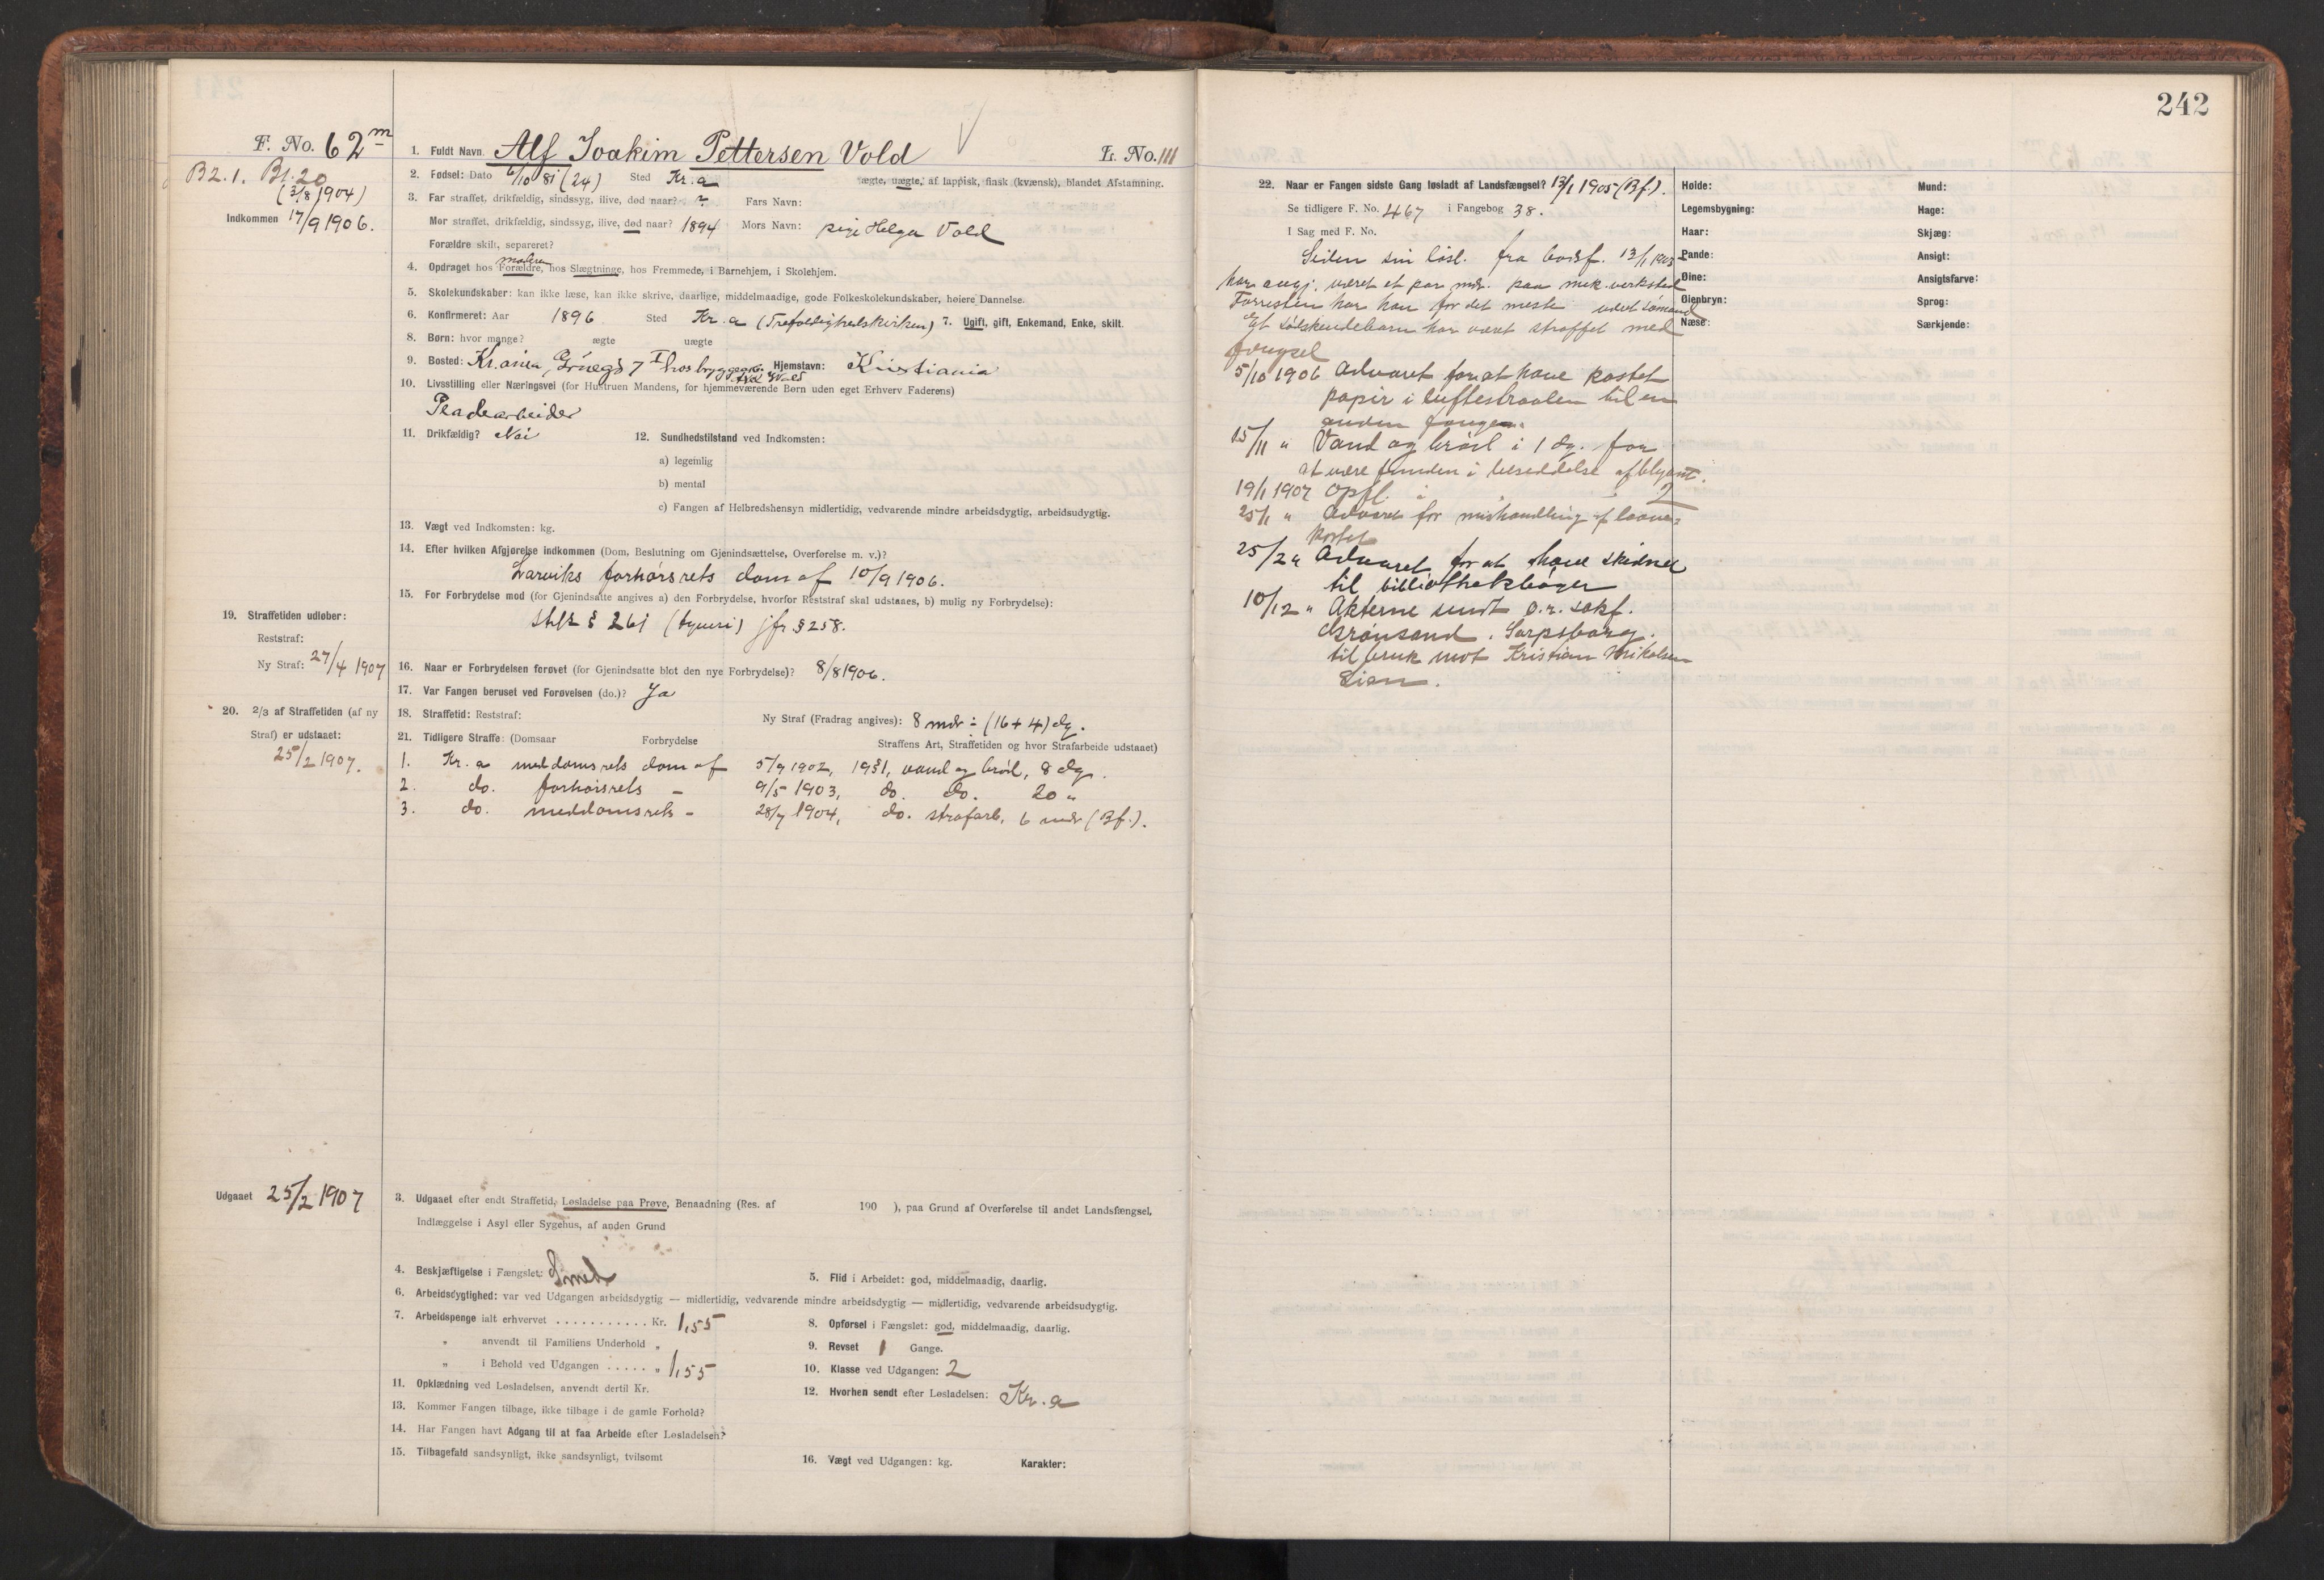 242
F. No. 62 m
B 2. 1. Bl. 20
(3/8 1904)
Indkommen 17/9 1906.
1. Fuldt Navn. Alf Joakim Pettersen Vold L. No. 111
2. Fødsel: Dato 6/10 81 (24) Sted Kr.a ægte, uægte, af lappisk, finsk (kvænsk), blandet Afstamning.
3. Far straffet, drikfældig, sindssyg, ilive, død naar? ? Fars Navn:
Mor straffet, drikfældig, sindssyg, ilive, død naar? 1894 Mors Navn: pige Helga Vold
Forældre skilt, separeret?
moderen
4. Opdraget hos Forældre, hos Slægtninge, hos Fremmede, i Barnehjem, i Skolehjem.
5. Skolekundskaber: kan ikke læse, kan ikke skrive, daarlige, middelmaadige, gode Folkeskolekundskaber, høiere Dannelse.
6. Konfirmeret: Aar 1896 Sted Kr.a (Trefoldighedskirken) 7. Ugift, gift, Enkemand, Enke, skilt.
8. Børn: hvor mange? ægte uægte
9. Bosted: Kr.ania, 7 I hos Hjemstavn: Kristiania
10. Livsstilling eller Næringsvei (for Hustruen Mandens, for hjemmeværende Børn uden eget Erhverv Faderens)
Pladearbeider
11. Drikfældig? Nei 12. Sundhedstilstand ved Indkomsten:
a) legemlig
b) mental
c) Fangen af Helbredshensyn midlertidig, vedvarende mindre arbeidsdygtig, arbeidsudygtig.
13. Vægt ved Indkomsten: kg.
14. Efter hvilken Afgjørelse indkommen (Dom, Beslutning om Gjenindsættelse, Overførelse m. v.)?
Larviks forhørsrets dom af 10/9 1906.
15. For Forbrydelse mod (for Gjenindsatte angives a) den Forbrydelse, hvorfor Reststraf skal udstaaes, b) mulig ny Forbrydelse):
§ 261 (tyveri) jfr § 258.
19. Straffetiden udløber:
Reststraf:
Ny Straf: 27/4 1907
16. Naar er Forbrydelsen forøvet (for Gjenindsatte blot den nye Forbrydelse)? 8/8 1906.
17. Var Fangen beruset ved Forøvelsen (do.)? Ja
20. 2/3 af Straffetiden (af ny
Straf) er udstaaet:
25/2 1907.
18. Straffetid: Reststraf: Ny Straf (Fradrag angives): 8 mdr ÷ (16 + 4) dg.
21. Tidligere Straffe: (Domsaar Forbrydelse Straffens Art, Straffetiden og hvor Strafarbeide udstaaet)
1. Kr.a meddomsrets dom af 5/9 1902, 19§1, vand og brød, 8 dg.
2. do. forhørsrets - 9/5 1903, do. do. 20 "
3. do. meddomsrets - 28/7 1904, do. strafarb. 6 mdr (Bf.).
Udgaaet 25/2 1907
3. Udgaaet efter endt Straffetid, Løsladelse paa Prøve, Benaadning (Res. af 190 ), paa Grund af Overførelse til andet Landsfængsel,
Indlæggelse i Asyl eller Sygehus, af anden Grund
4. Beskjæftigelse i Fængslet: Smed 5. Flid i Arbeidet: god, middelmaadig, daarlig.
6. Arbeidsdygtighed: var ved Udgangen arbeidsdygtig — midlertidig, vedvarende mindre arbeidsdygtig — midlertidig, vedvarende arbeidsudygtig.
7. Arbeidspenge ialt erhvervet ........... Kr. 1,55 8. Opførsel i Fængslet: god, middelmaadig, daarlig.
" anvendt til Familiens Underhold " 9. Revset 1 Gange.
" i Behold ved Udgangen ..... " 1,55 10. Klasse ved Udgangen: 2
11. Opklædning ved Løsladelsen, anvendt dertil Kr. 12. Hvorhen sendt efter Løsladelsen: Kr.a
13. Kommer Fangen tilbage, ikke tilbage i de gamle Forhold?
14. Har Fangen havt Adgang til at faa Arbeide efter Løsladelsen?
15. Tilbagefald sandsynligt, ikke sandsynligt, tvilsomt 16. Vægt ved Udgangen: kg. Karakter:
22. Naar er Fangen sidste Gang løsladt af Landsfængsel? 13/1 1905 (Bf.).
Se tidligere F. No. 467 i Fangebog 38.
I Sag med F. No.
Siden sin løsl. fra bodsf. 13/1 1905
har angj. været et par mdr. paa mek. verksted
Forresten har han for det meste været sømand
Et søskendebarn har været straffet med
fængsel
5/10 1906 Advaret for at have kastet
papir i luftestraalen til en
anden fange.
15/11 " Vand og brød i 1 dg. for
at være funden i besiddelse af blyant.
19/1 1907 Opfl. i 2
25/1 " Advaret for mishandling af
25/2 " Advaret for at have skidnet
til bibliothekbøger
10/12 " Akterne sendt o.r. sakf.
Grønsand. Sarpsborg.
til bruk mot Kristian Mikalsen
Lien.
Høide:
Legemsbygning:
Haar:
Pande:
Øine:
Øienbryn:
Næse:
Mund:
Hage:
Skjæg:
Ansigt:
Ansigtsfarve:
Sprog:
Særkjende: